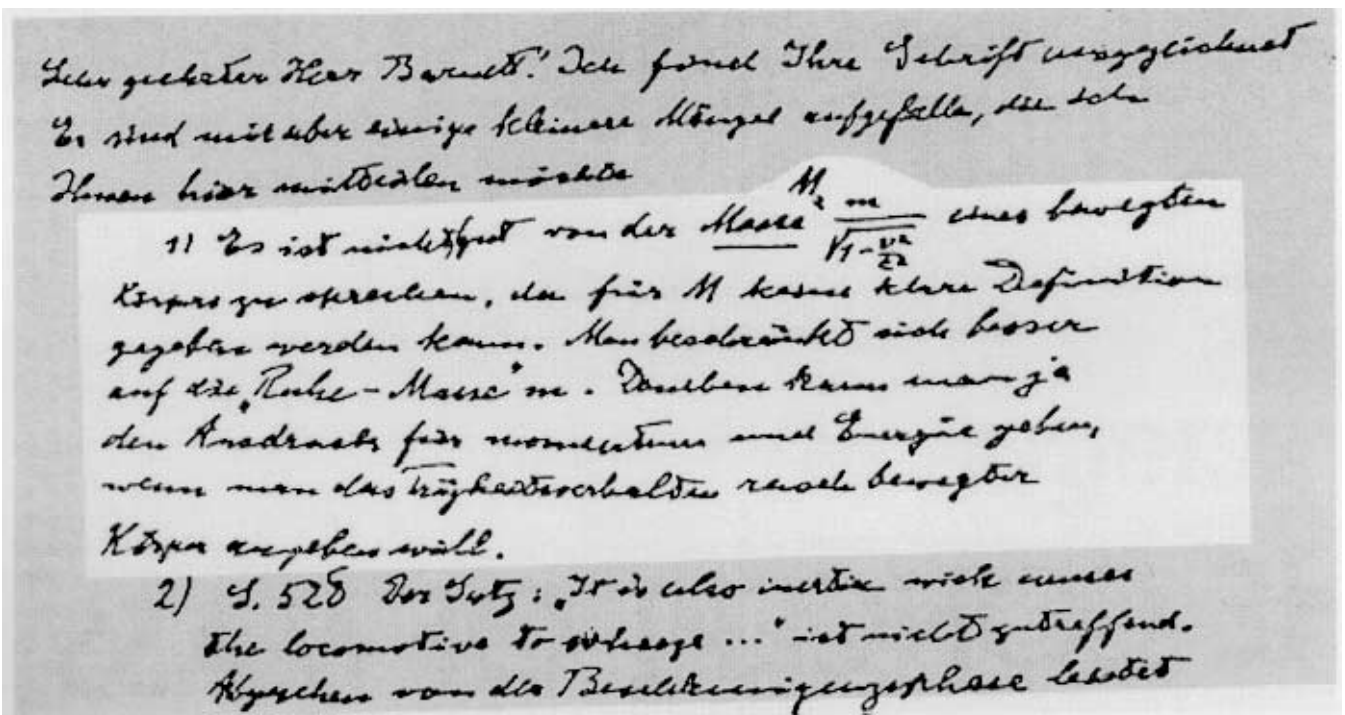 Sehr geehrter Herr Barnett! Ich fand Ihre Schrift ausgezeichnet
Es sind mir aber einige kleinere Mängel aufgefallen, die ich
Ihnen hier mitteilen möchte
1) Es ist nicht gut von der Masse M = m/√(1-v²/c²) eines bewegten
Körpers zu sprechen, da für M keine klare Definition
gegeben werden kann. Man beschränkt sich besser
auf die „Ruhe-Masse" m. Daneben kann man ja
den Ausdruck für momentum und Energie geben,
wenn man das Trägheitsverhalten rasch bewegter
Körper angeben will.
2) S. Der Satz: „It is also inertia wich causes
the locomotive to ..." ist nicht zutreffend.
Abgesehen von der Beschleunigungsphase leistet